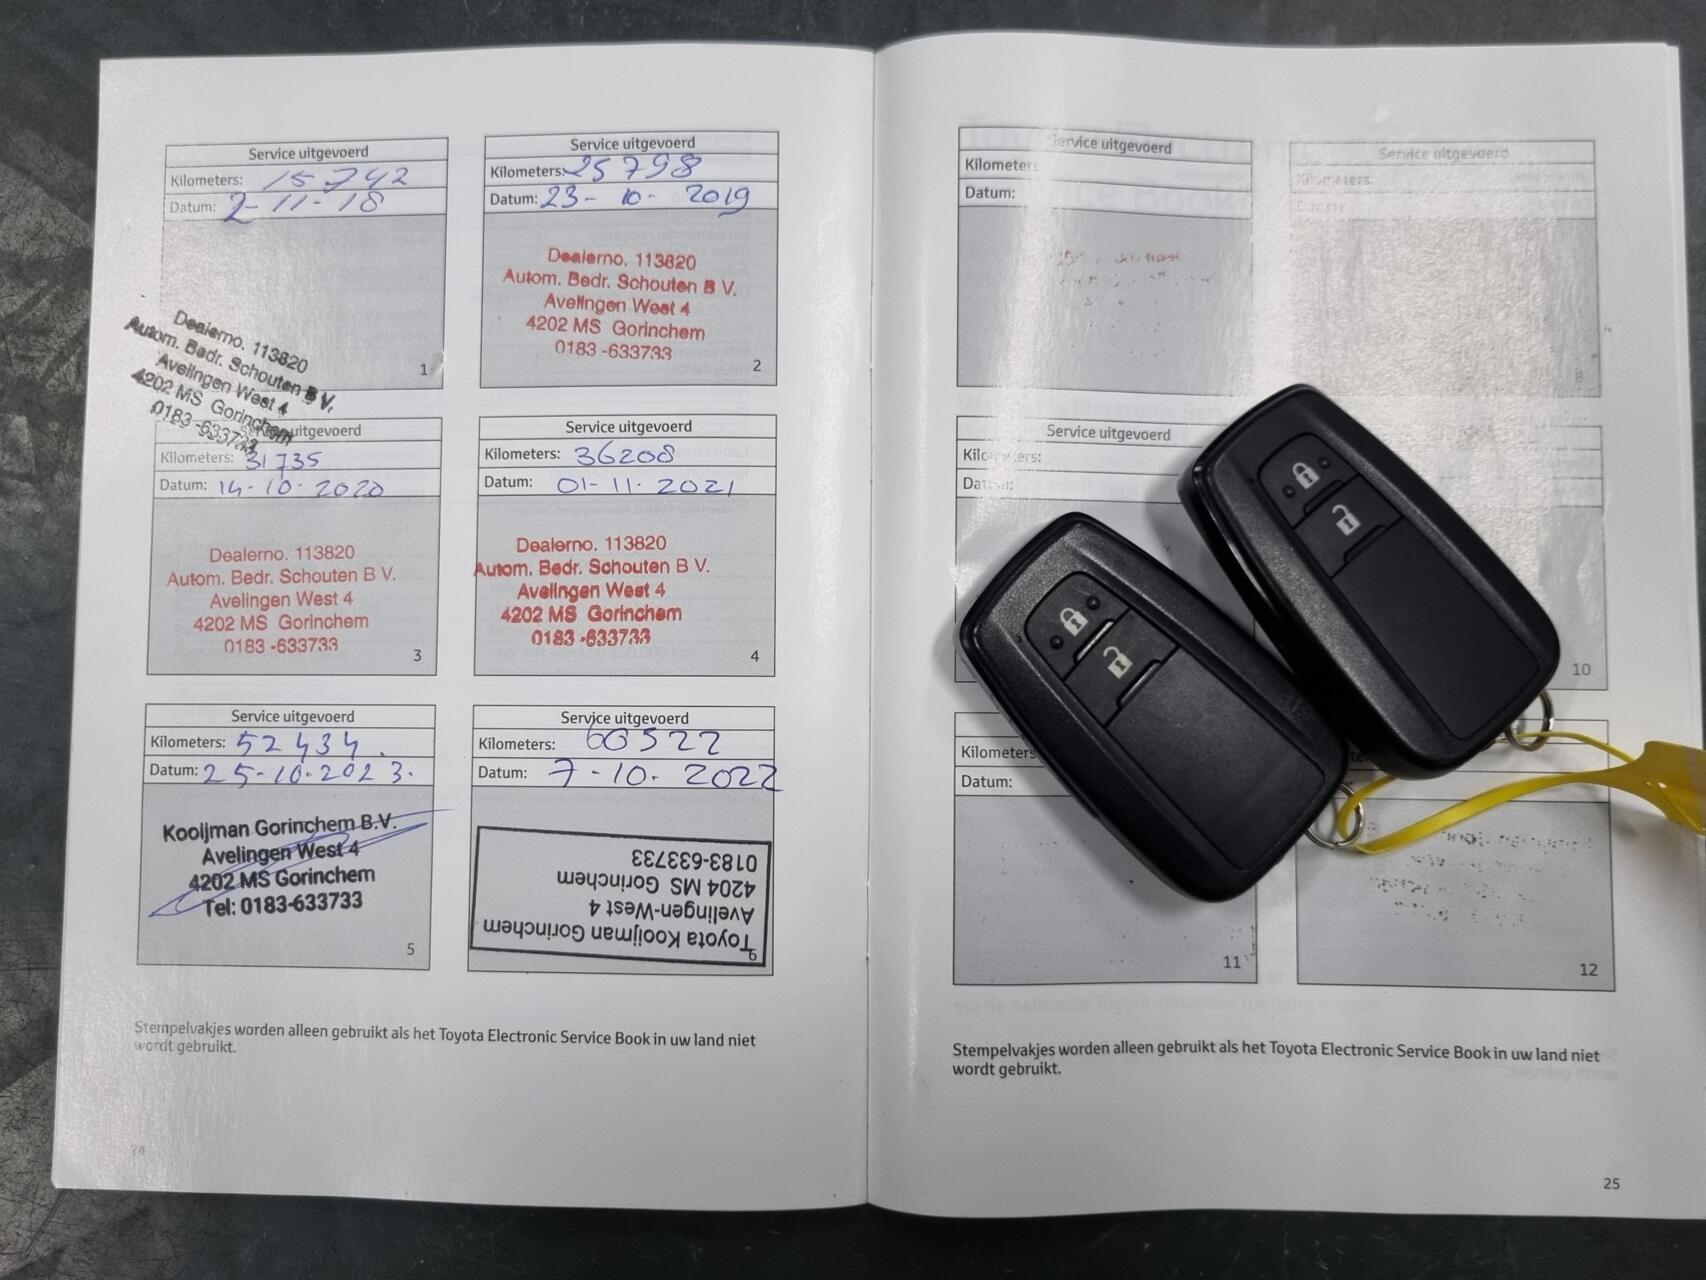 Service uitgevoerd
Kilometers: 15742
Datum: 2-11-18
Dealerno. 113820
Autom. Bedr. Schouten B V.
Avelingen West 4
4202 MS Gorinchem
0183-633733
1
Service uitgevoerd
Kilometers: 25798
Datum: 23-10-2019
Dealerno. 113820
Autom. Bedr. Schouten B V.
Avelingen West 4
4202 MS Gorinchem
0183-633733
2
uitgevoerd
Kilometers: 31735
Datum: 14-10-2020
Dealerno. 113820
Autom. Bedr. Schouten B V.
Avelingen West 4
4202 MS Gorinchem
0183-633733
3
Service uitgevoerd
Kilometers: 36208
Datum: 01-11-2021
Dealerno. 113820
Autom. Bedr. Schouten B V.
Avelingen West 4
4202 MS Gorinchem
0183-633733
4
Service uitgevoerd
Kilometers: 52434.
Datum: 25-10-2023.
Kooijman Gorinchem B.V.
Avelingen West 4
4202 MS Gorinchem
Tel: 0183-633733
5
Service uitgevoerd
Kilometers: 60522
Datum: 7-10-2022
Toyota Kooijman Gorinchem
Avelingen-West 4
4204 MS Gorinchem
0183-633733
6
Stempelvakjes worden alleen gebruikt als het Toyota Electronic Service Book in uw land niet
wordt gebruikt.
24
Service uitgevoerd
Kilometers
Datum:
Service uitgevoerd
Kilometers:
Datum:
8
Service uitgevoerd
Kilometers:
Datum:
10
Kilometers
Datum:
11
12
Stempelvakjes worden alleen gebruikt als het Toyota Electronic Service Book in uw land niet
wordt gebruikt.
25